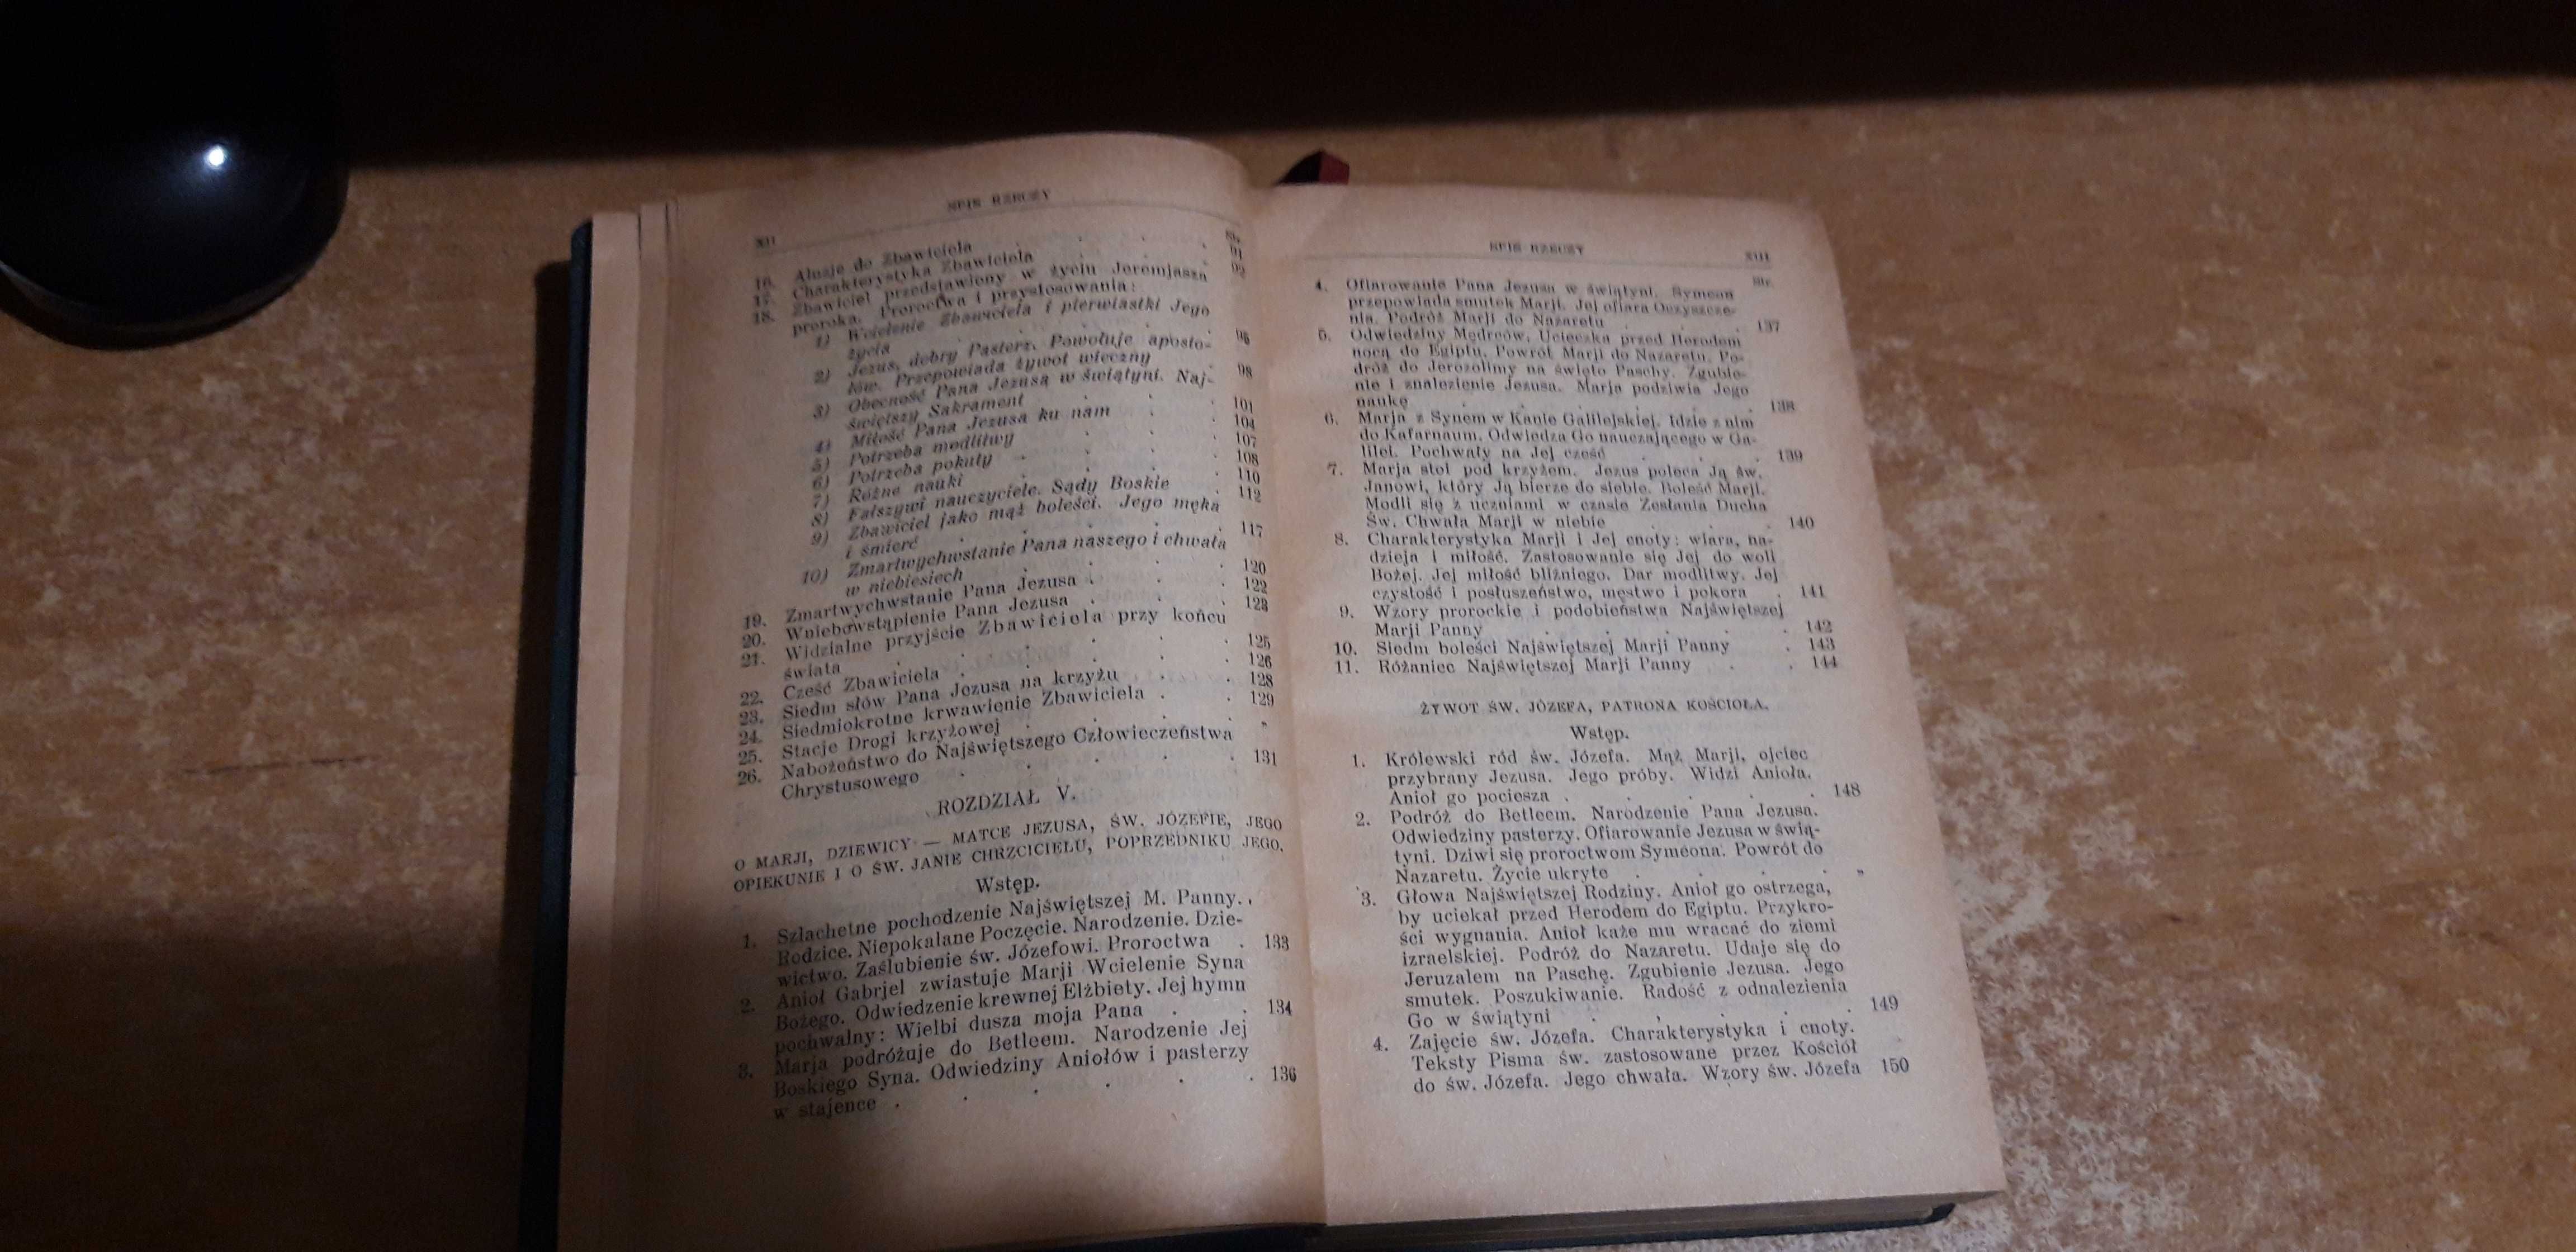 XII
SPIS RZECZY
Str.
16. Aluzje do Zbawiciela . . . 91
17. Charakterystyka Zbawiciela . . 92
18. Zbawiciel przedstawiony w życiu Jeremjasza
proroka. Proroctwa i przystosowania:
1) Wcielenie Zbawiciela i pierwiastki Jego
życia . . . . 96
2) Jezus, dobry Pasterz. Powołuje aposto-
łów. Przepowiada żywot wieczny . 98
3) Obecność Pana Jezusa w świątyni. Naj-
świętszy Sakrament . . . 101
4) Miłość Pana Jezusa ku nam . . 104
5) Potrzeba modlitwy . . . 107
6) Potrzeba pokuty . . . 108
7) Różne nauki . . . 110
8) Fałszywi nauczyciele. Sądy Boskie . 112
9) Zbawiciel jako mąż boleści. Jego męka
i śmierć . . . . 117
10) Zmartwychwstanie Pana naszego i chwała
w niebiesiech . . . 120
19. Zmartwychwstanie Pana Jezusa . . . 122
20. Wniebowstąpienie Pana Jezusa . . . 123
21. Widzialne przyjście Zbawiciela przy końcu
świata . . . . 125
22. Cześć Zbawiciela . . . . 126
23. Siedm słów Pana Jezusa na krzyżu . . 128
24. Siedmiokrotne krwawienie Zbawiciela . . 129
25. Stacje Drogi krzyżowej . . . . „
26. Nabożeństwo do Najświętszego Człowieczeństwa
Chrystusowego . . . . 131
ROZDZIAŁ V.
O MARJI, DZIEWICY — MATCE JEZUSA, ŚW. JÓZEFIE, JEGO
OPIEKUNIE I O ŚW. JANIE CHRZCICIELU, POPRZEDNIKU JEGO.
Wstęp.
1. Szlachetne pochodzenie Najświętszej M. Panny.
Rodzice. Niepokalane Poczęcie. Narodzenie. Dzie-
wictwo. Zaślubienie św. Józefowi. Proroctwa . 133
2. Anioł Gabrjel zwiastuje Marji Wcielenie Syna
Bożego. Odwiedzenie krewnej Elżbiety. Jej hymn
pochwalny: Wielbi dusza moja Pana . . 134
3. Marja podróżuje do Betleem. Narodzenie Jej
Boskiego Syna. Odwiedziny Aniołów i pasterzy
w stajence . . . . . 136
SPIS RZECZY
XIII
Str.
4. Ofiarowanie Pana Jezusa w świątyni. Symeon
przepowiada smutek Marji. Jej ofiara Oczyszcze-
nia. Podróż Marji do Nazaretu . . . 137
5. Odwiedziny Mędrców. Ucieczka przed Herodem
nocą do Egiptu. Powrót Marji do Nazaretu. Po-
dróż do Jerozolimy na święto Paschy. Zgubie-
nie i znalezienie Jezusa. Marja podziwia Jego
naukę . . . . . 138
6. Marja z Synem w Kanie Galilejskiej. Idzie z nim
do Kafarnaum. Odwiedza Go nauczającego w Ga-
lilei. Pochwały na Jej cześć . . . 139
7. Marja stoi pod krzyżem. Jezus poleca Ją św.
Janowi, który Ją bierze do siebie. Boleść Marji.
Modli się z uczniami w czasie Zesłania Ducha
Św. Chwała Marji w niebie . . . 140
8. Charakterystyka Marji i Jej cnoty: wiara, na-
dzieja i miłość. Zastosowanie się Jej do woli
Bożej. Jej miłość bliźniego. Dar modlitwy. Jej
czystość i posłuszeństwo, męstwo i pokora . 141
9. Wzory prorockie i podobieństwa Najświętszej
Marji Panny . . . . 142
10. Siedm boleści Najświętszej Marji Panny . 143
11. Różaniec Najświętszej Marji Panny . . 144
ŻYWOT ŚW. JÓZEFA, PATRONA KOŚCIOŁA.
Wstęp.
1. Królewski ród św. Józefa. Mąż Marji, ojciec
przybrany Jezusa. Jego próby. Widzi Anioła.
Anioł go pociesza . . . . 148
2. Podróż do Betleem. Narodzenie Pana Jezusa.
Odwiedziny pasterzy. Ofiarowanie Jezusa w świą-
tyni. Dziwi się proroctwom Symeona. Powrót do
Nazaretu. Życie ukryte . . . . „
3. Głowa Najświętszej Rodziny. Anioł go ostrzega,
by uciekał przed Herodem do Egiptu. Przykro-
ści wygnania. Anioł każe mu wracać do ziemi
izraelskiej. Podróż do Nazaretu. Udaje się do
Jeruzalem na Paschę. Zgubienie Jezusa. Jego
smutek. Poszukiwanie. Radość z odnalezienia
Go w świątyni . . . . . 149
4. Zajęcie św. Józefa. Charakterystyka i cnoty.
Teksty Pisma św. zastosowane przez Kościół
do św. Józefa. Jego chwała. Wzory św. Józefa 150